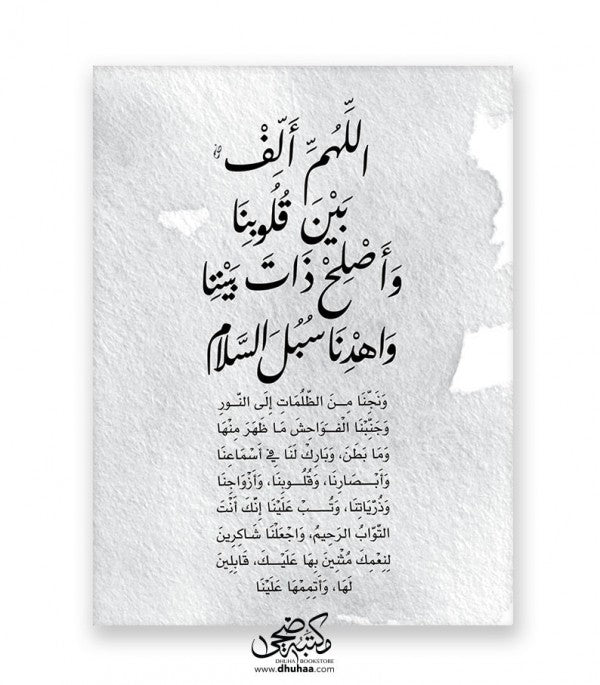 اللَّهُمَّ أَلِّفْ
بَيْنَ قُلُوبِنَا
وَأَصْلِحْ ذَاتَ بَيْنِنَا
وَاهْدِنَا سُبُلَ السَّلَامِ
وَنَجِّنَا مِـنَ الظُّلُمَاتِ إِلَى النُّـورِ
وَجَنِّبْنَا الْـفَـوَاحِشَ مَـا ظَهَرَ مِنْهَا
وَمَـا بَطَنَ، وَبَارِكْ لَنَا فِي أَسْمَاعِنَا
وَأَبْـصَـارِنَا، وَقُـلُـوبِنَا، وَأَزْوَاجِنَا
وَذُرِّيَّاتِنَا، وَتُــبْ عَلَيْنَا إِنَّكَ أَنْتَ
التَّوَّابُ الرَحِيمُ، وَاجْعَلْنَا شَاكِرِينَ
لِنِعَمِكَ مُثْنِينَ بِهَا عَلَيْــكَ، قَابِلِينَ
لَهَا، وَأَتِمِمْهَا عَلَيْنَا
مكتبة ضحى
DHUHA BOOKSTORE
www.dhuhaa.com